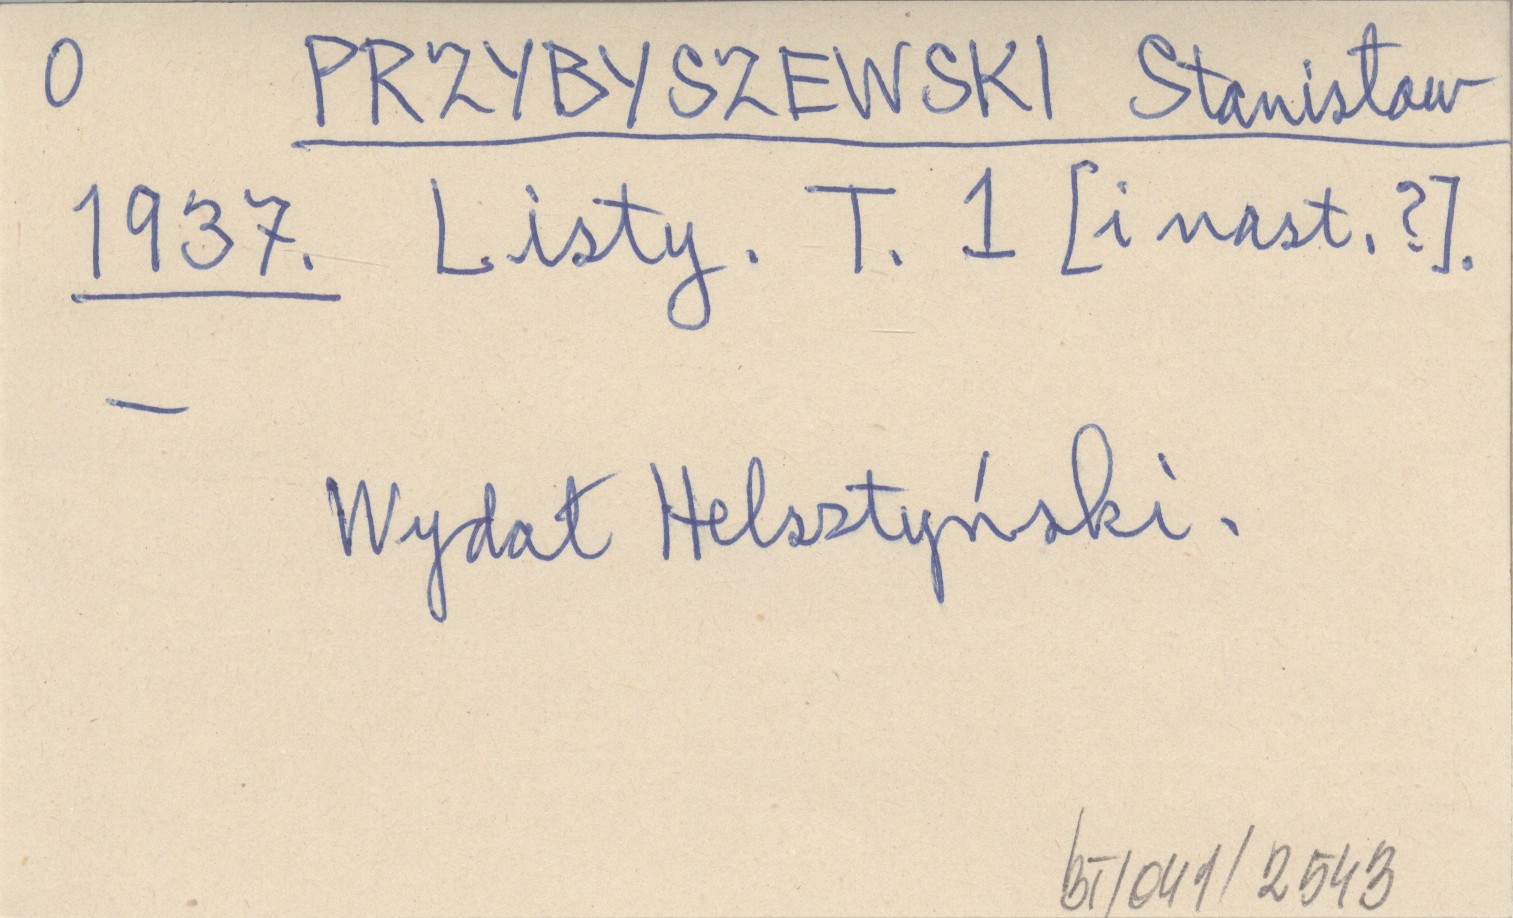 0 PRZYBYSZEWSKI Stanisław
1937. Listy. T. 1 [i nast.?].
—
Wydał Helsztyński.
BT/041/2543